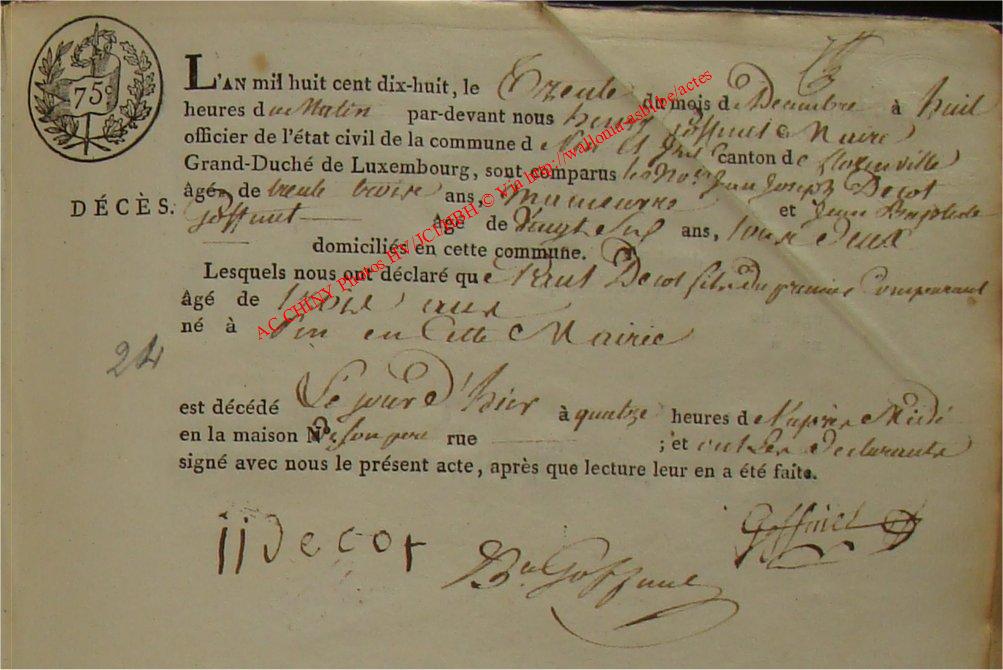 75c
L'AN mil huit cent dix-huit, le Trente du mois de Decembre à huit
heures du Matin par-devant nous henry Goffinet Maire
officier de l'état civil de la commune d canton de florenville
Grand-Duché de Luxembourg, sont comparus les Nos Jean Joseph Decot
DÉCÈS.
âgé de trente trois ans, manœuvre et Jean Baptiste
Goffinet âgé de Vingt Six ans, tous deux
domiciliés en cette commune.
Lesquels nous ont déclaré que Decot fils du premier Comparant
âgé de trois ans
né à Pin en Cette Mairie
24
est décédé Le jour d'hier à quatre heures de l'après Midi
en la maison No de son pere rue ; et ont les declarants
signé avec nous le présent acte, après que lecture leur en a été faite.
jj Decot
Bte Goffinet
Goffinet
AC CHINY Photos HV/JCL/GBH © Via http://wallonia-asbl.be/actes